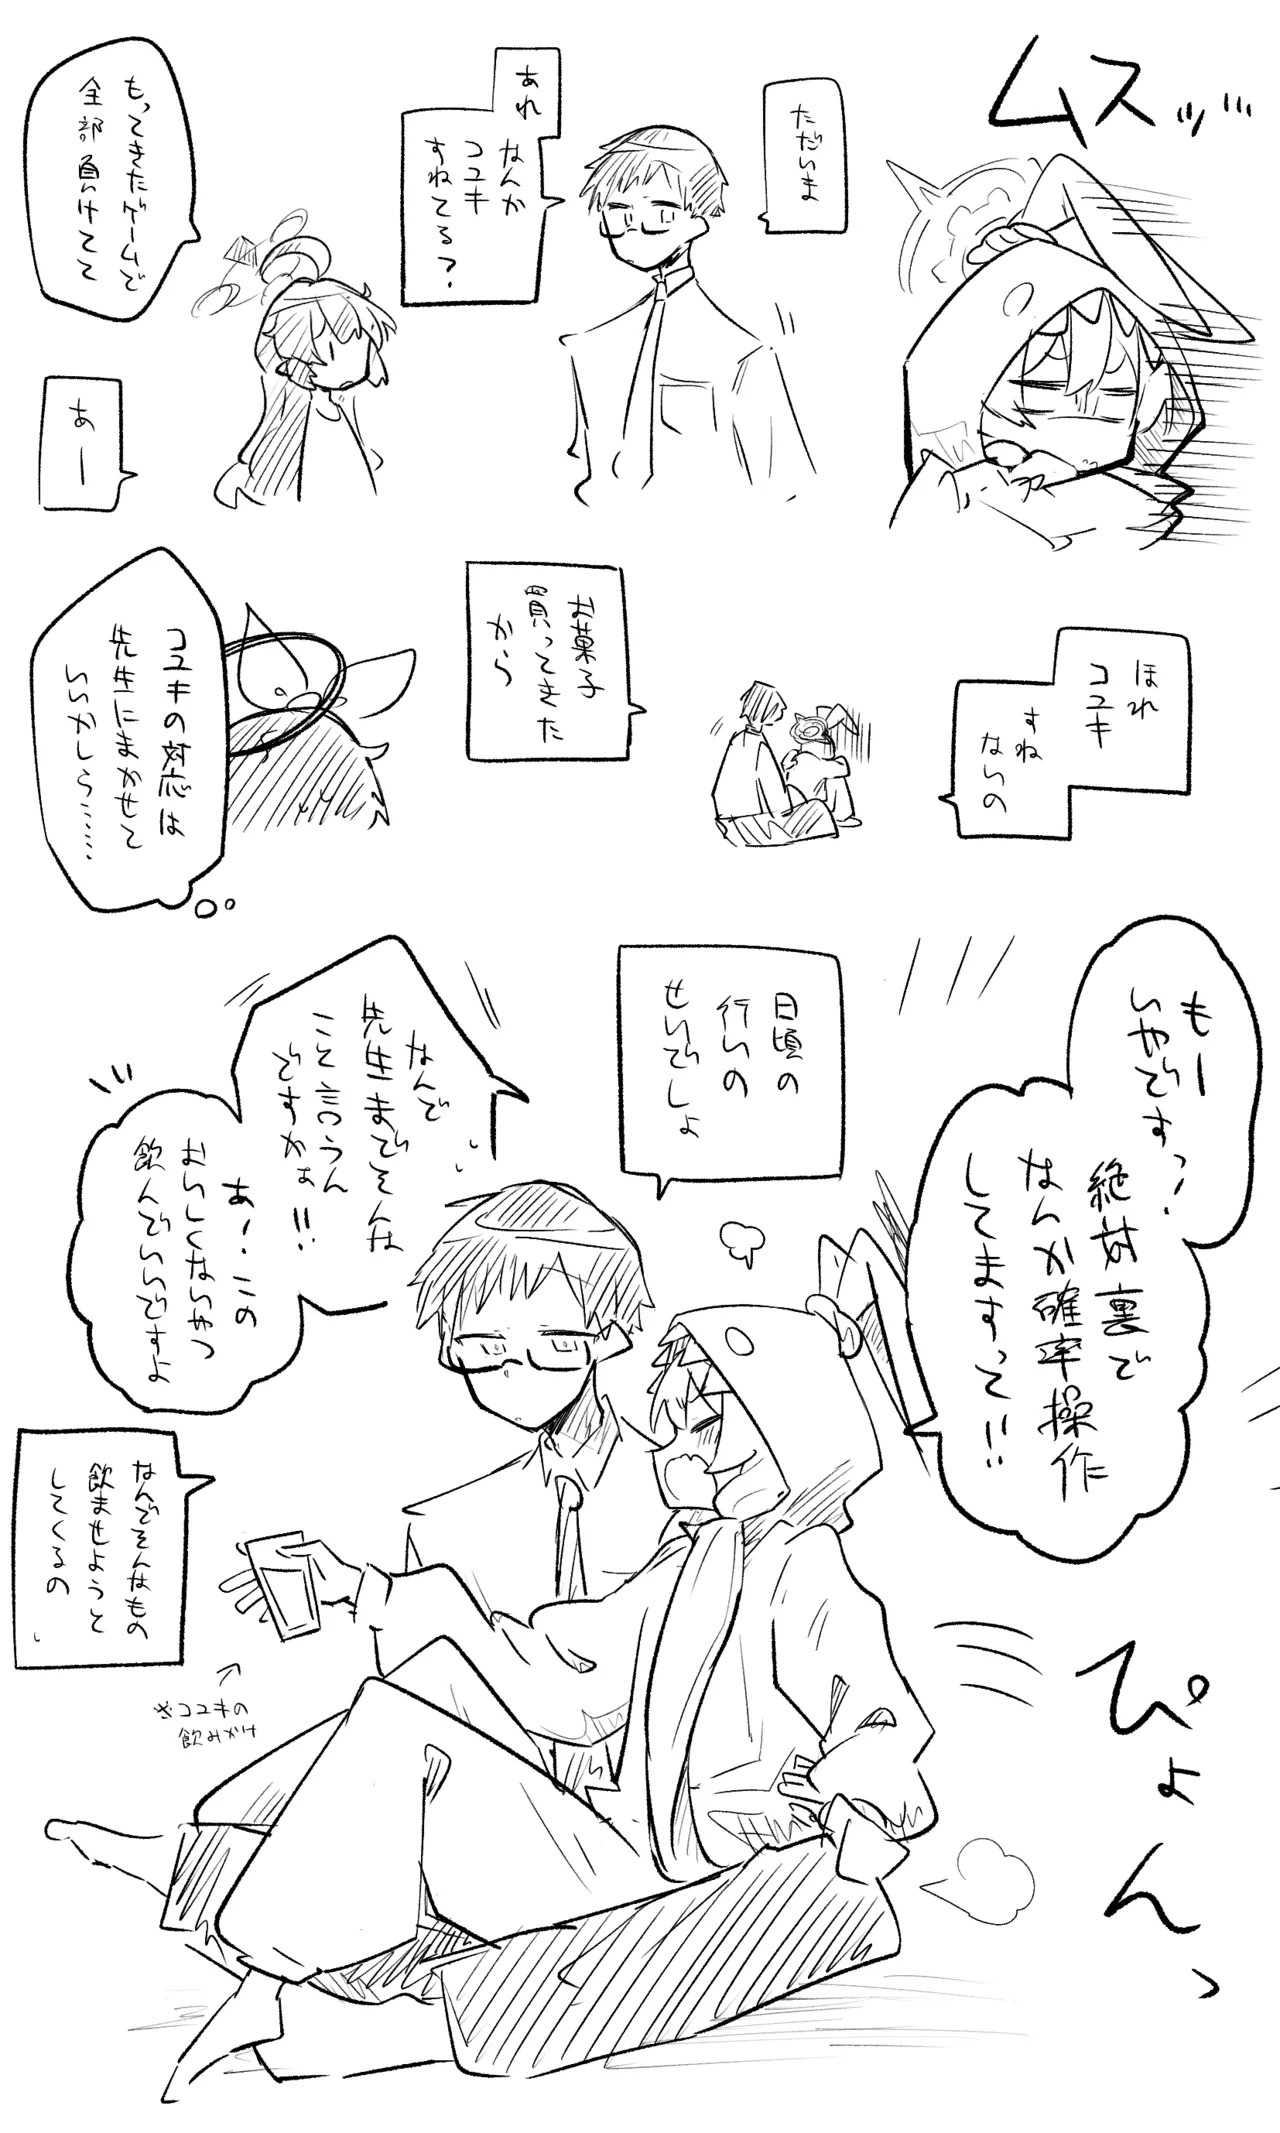 ムスッ
ただいま
あれ
なんか
コユキ
すねてる?
もってきたゲームで
全部負けてて
あー
ほれ
コユキ
すね
ないの
お菓子
買ってきた
から
コユキの対応は
先生にまかせて
いいかしら……
もー
いやですっ!
絶対裏で
なんか確率操作
してますって!!
日頃の
行いの
せいでしょ
なんで
先生までそんな
こと言うん
ですかぁ!!
あ!この
おいしくないやつ
飲んでいいですよ
なんでそんなもの
飲ませようと
してくるの
※コユキの
飲みかけ
ぴょんっ